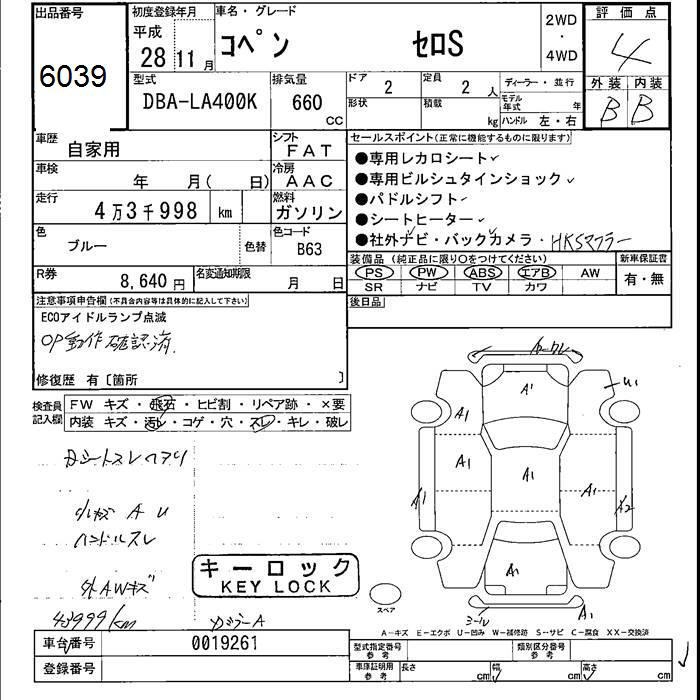 出品番号
6039
初度登録年月
平成
28 11 月
車名・グレード
コペン セロS
2WD
・
4WD
評価点
4
外装 内装
B B
型式
DBA-LA400K
排気量
660
CC
ドア
2
定員
2 人
形状
積載
kg
ディーラー・並行
モデル年式 年
ハンドル 左・右
車歴
自家用
シフト
FAT
車検
年 月( 日)
冷房
AAC
走行
4万3千998 km
燃料
ガソリン
色
ブルー
色替
色コード
B63
R券
8,640 円
名変通知期限
月 日
セールスポイント(正常に機能するものに限ります)
●専用レカロシート✓
●専用ビルシュタインショック✓
●パドルシフト✓
●シートヒーター✓
●社外ナビ・バックカメラ・HKSマフラー
装備品 (純正品に限り○をつけてください)
PS PW ABS エアB AW
SR ナビ TV カワ
新車保証書
有・無
後日品
注意事項申告欄(不具合内容等は具体的に記入して下さい)
ECOアイドルランプ点滅
OP動作確認済.
修復歴 有〔箇所 〕
検査員記入欄
FW キズ・飛石・ヒビ割・リペア跡・×要
内装 キズ・汚レ・コゲ・穴・スレ・キレ・破レ
小キズ A U
ハンドルスレ
外AWキズ
43999km
キーロック
KEY LOCK
A1
U1
A1
A1
A1
A1
A1
A2
A1
A1
スペア
A-キズ E-エクボ U-凹み W-補修跡 S-サビ C-腐食 XX-交換済
車台番号
0019261
登録番号
型式指定番号
参考
類別区分番号
参考
車庫証明用
参考
長さ cm 幅 cm 高さ cm